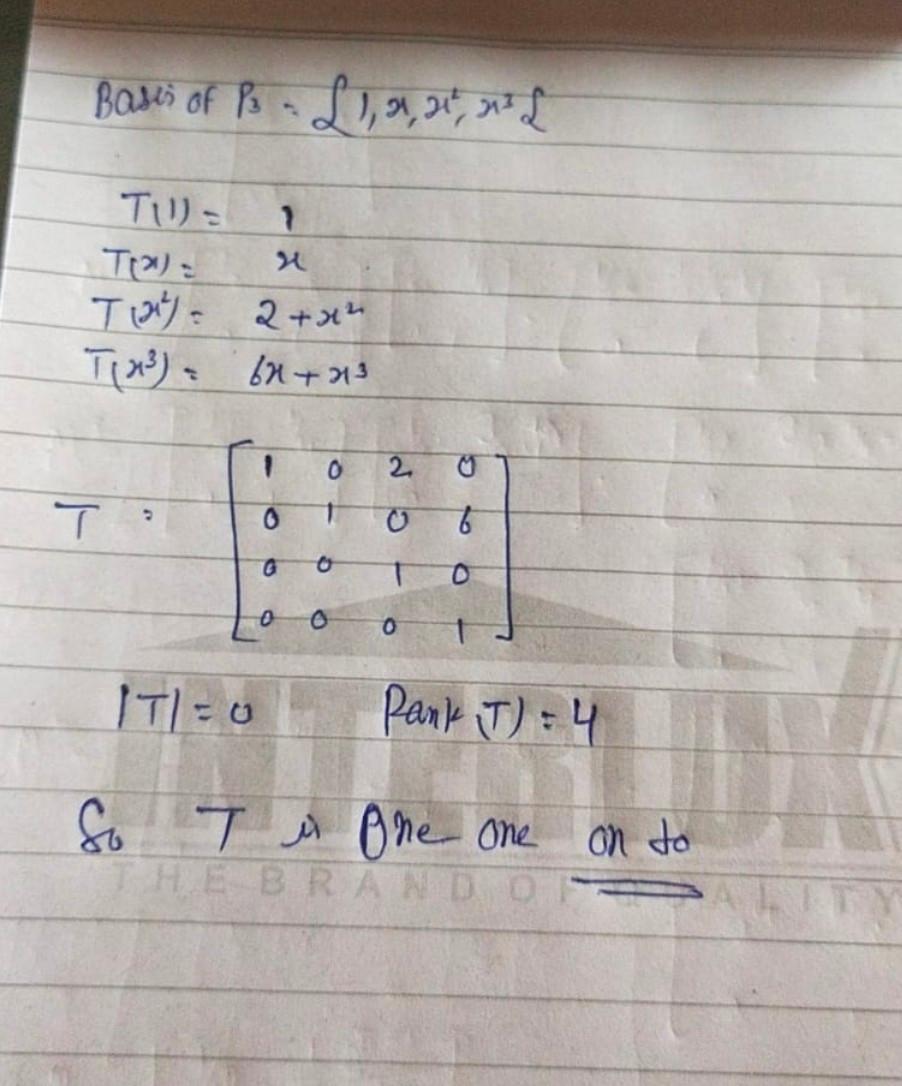 Basis of P₃ = { 1, x, x², x³ }
T(1) = 1
T(x) = x
T(x²) = 2 + x²
T(x³) = 6x + x³
1 0 2 0
T = 0 1 0 6
0 0 1 0
0 0 0 1
|T| = 0 Rank (T) = 4
So T is One one on to
INTERLUX
THE BRAND OF QUALITY